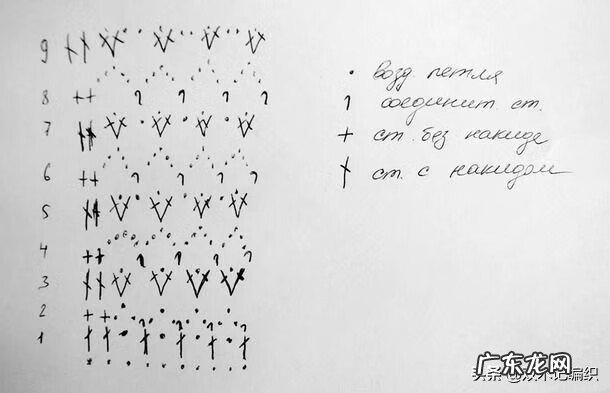 9
8
7
6
5
4
3
2
1
возд. петля
соединит ст.
ст. без накида
ст. с накидом
广东龙网
头条 @双木记编织